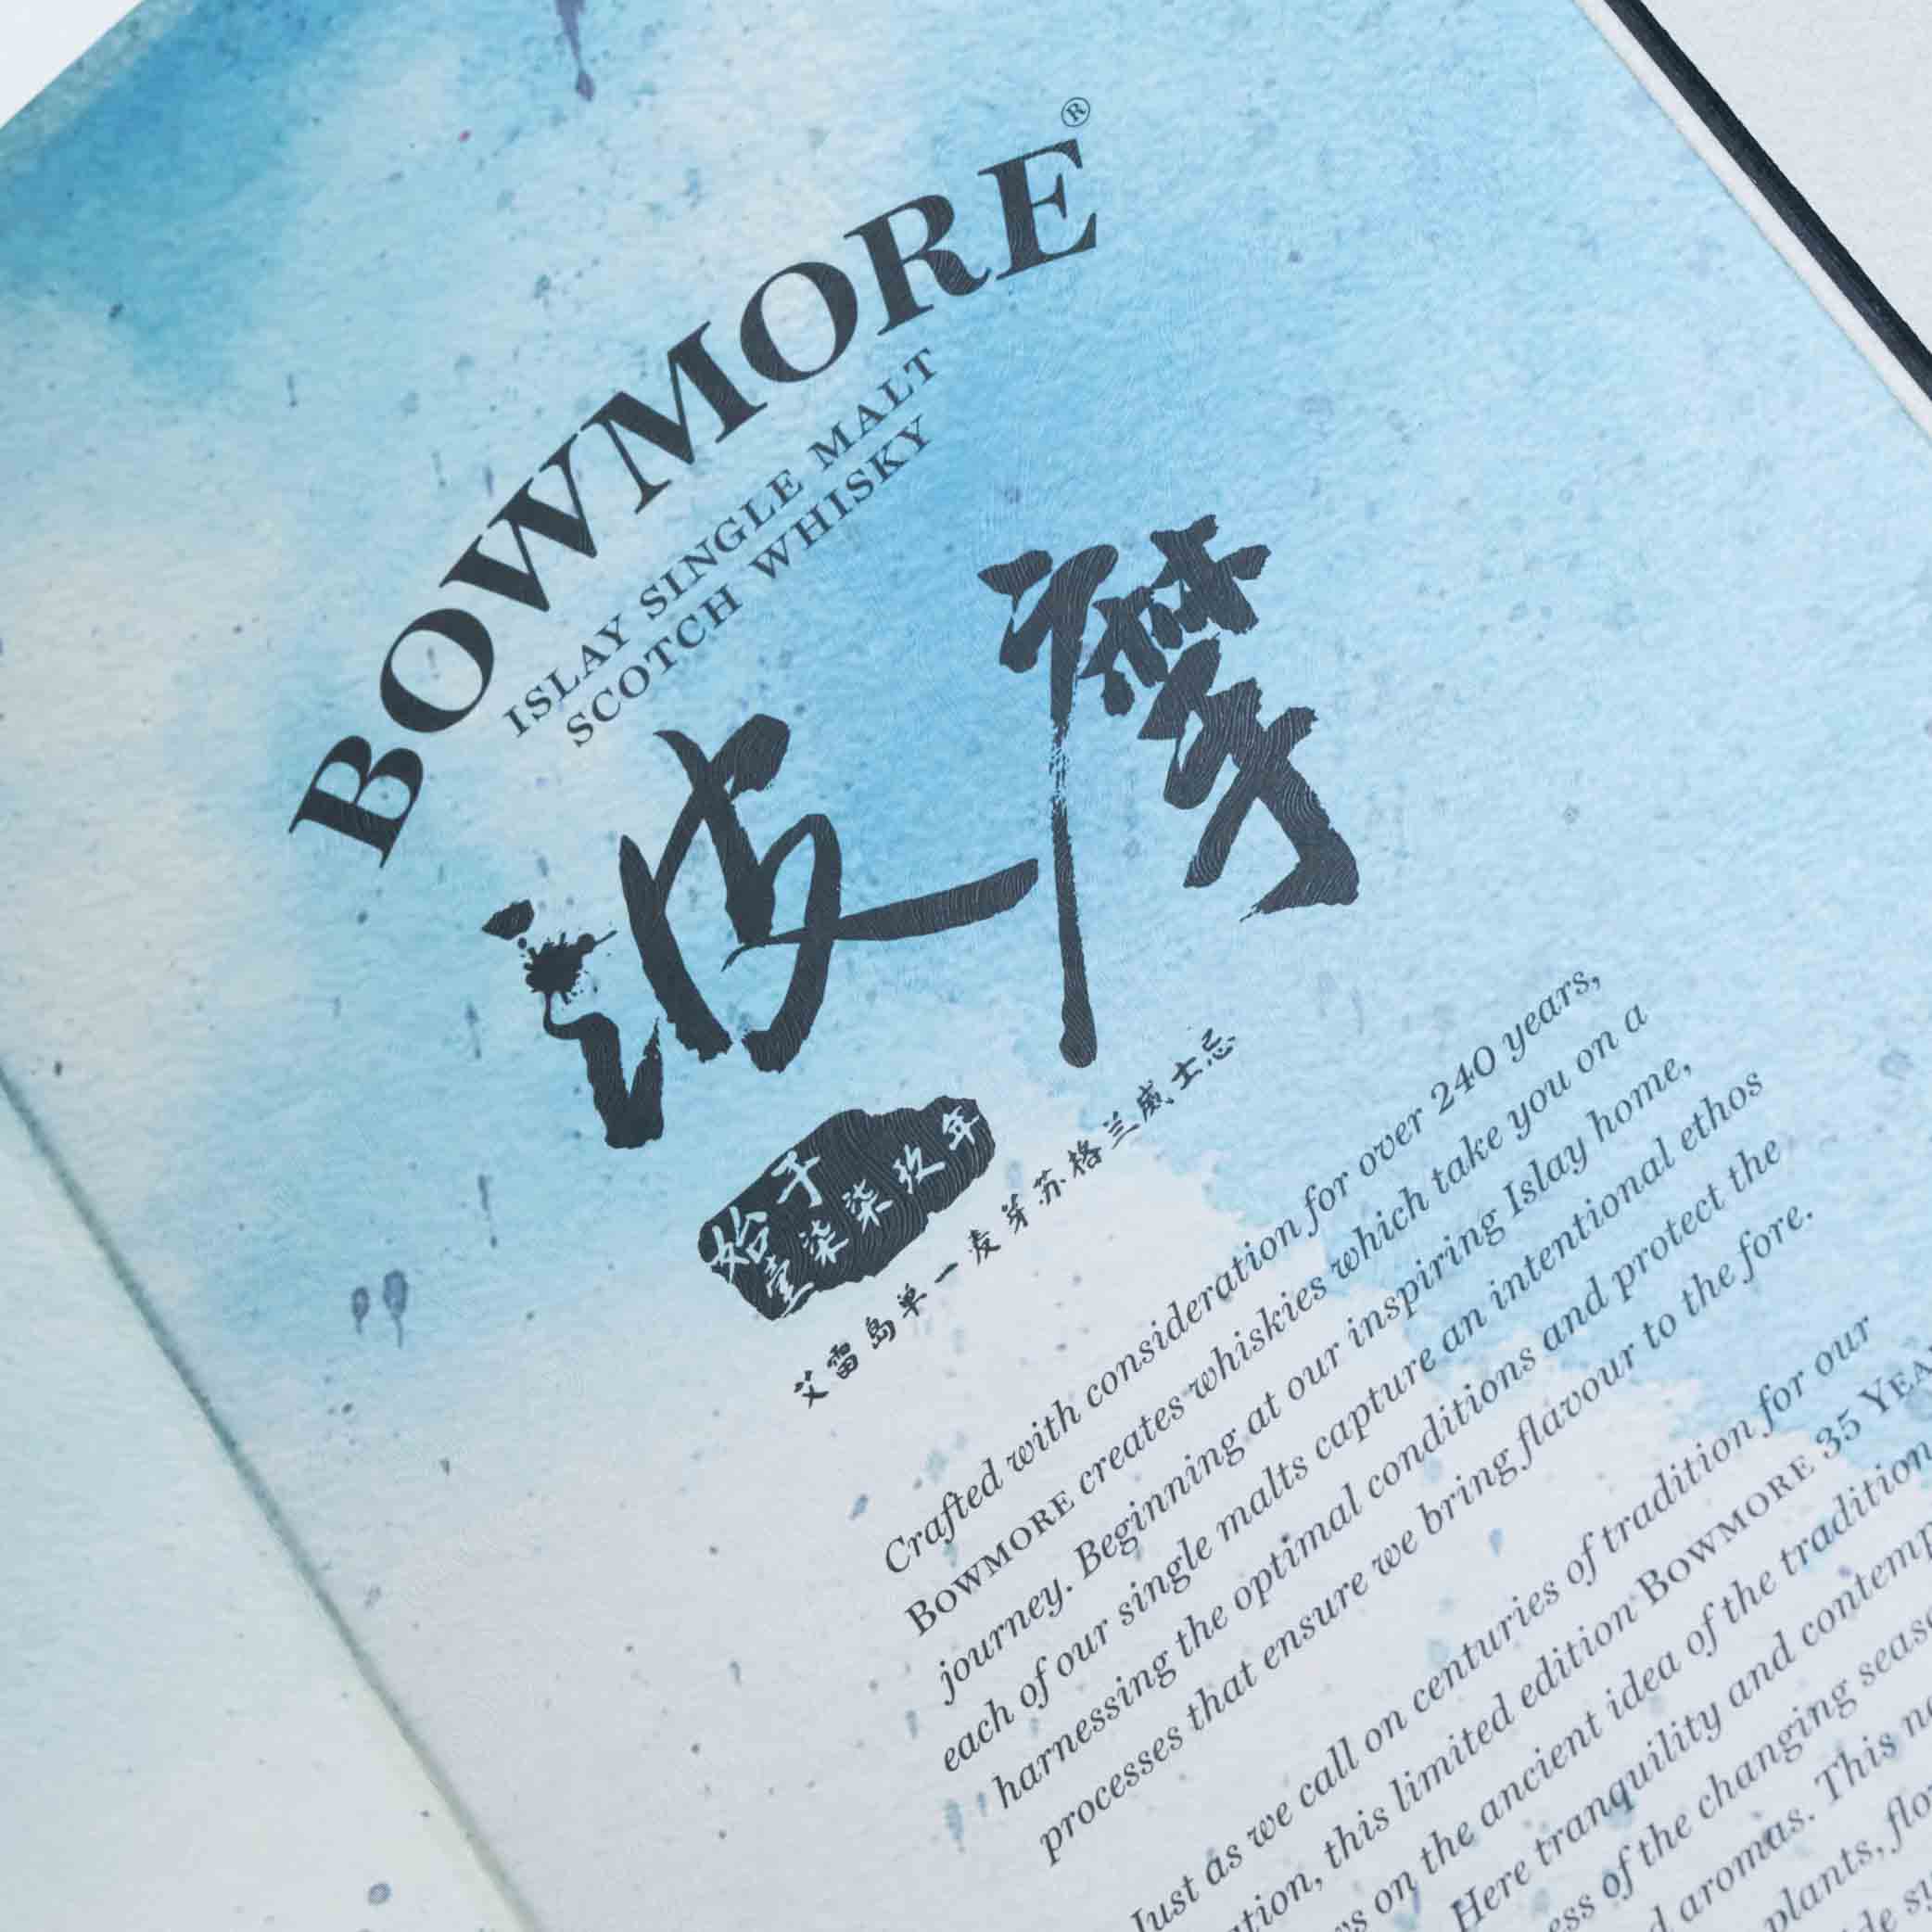 BOWMORE®
ISLAY SINGLE MALT
SCOTCH WHISKY
波摩
始于
壹柒柒玖年
艾雷岛单一麦芽苏格兰威士忌
Crafted with consideration for over 240 years,
BOWMORE creates whiskies which take you on a
journey. Beginning at our inspiring Islay home,
each of our single malts capture an intentional ethos
harnessing the optimal conditions and protect the
processes that ensure we bring flavour to the fore.
Just as we call on centuries of tradition for our
this limited edition BOWMORE 35
on the ancient idea of the tradition
Here tranquility and
of the changing
aromas. This
plants,